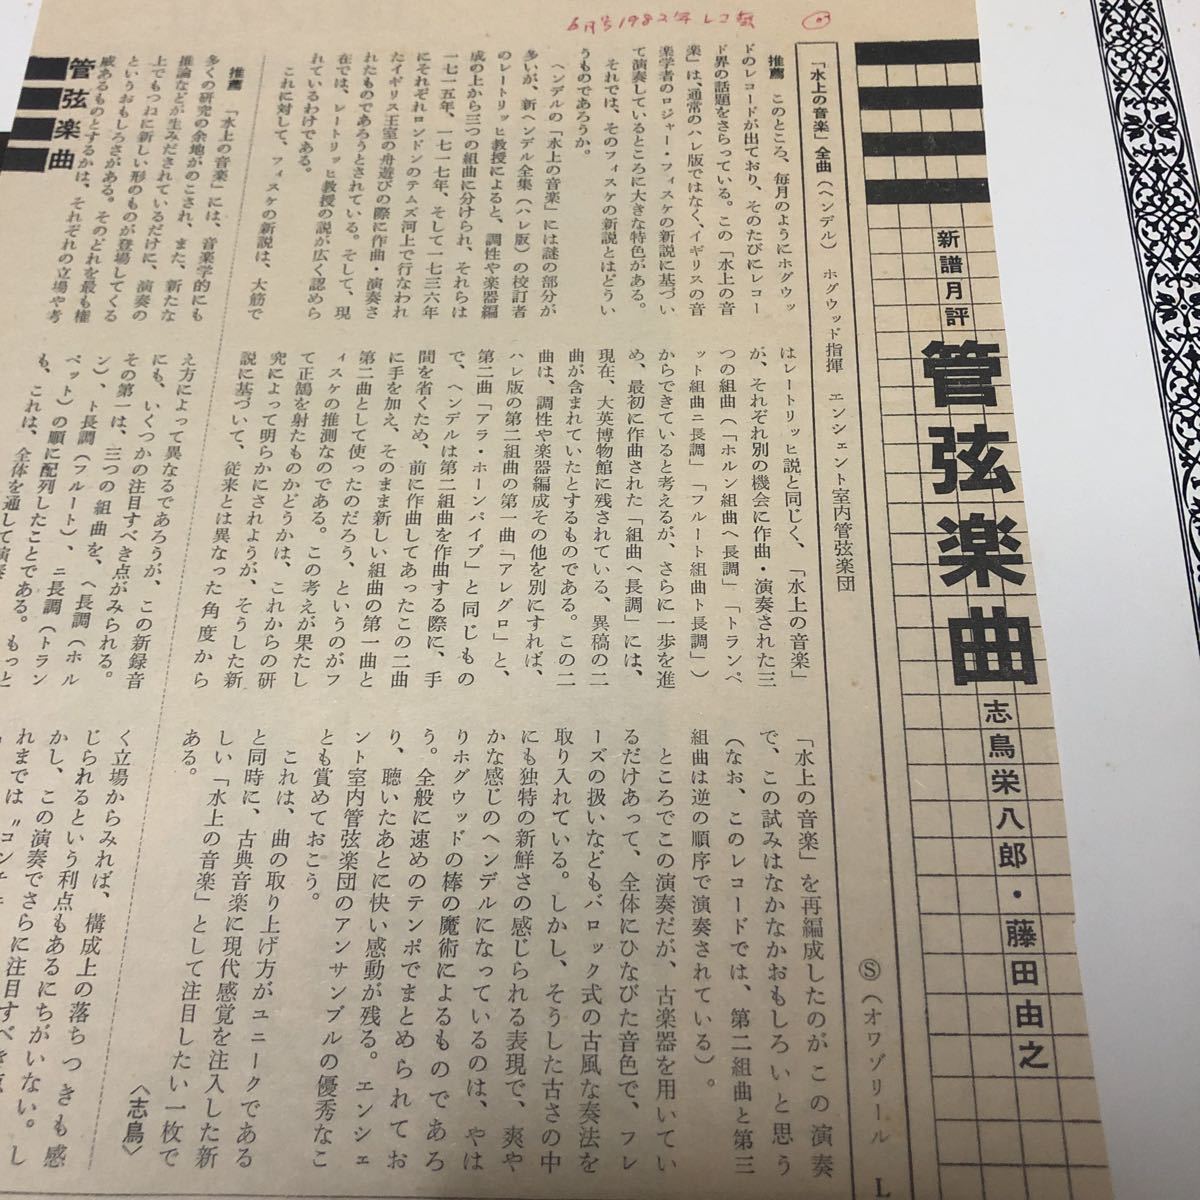 6月号1982年レコ芸
新譜月評
管弦楽曲
志鳥栄八郎・藤田由之
「水上の音楽」全曲(ヘンデル) ホグウッド指揮 エンシェント室内管弦楽団
Ⓢ(オワゾリール L
推薦 このところ、毎月のようにホグウッ
ドのレコードが出ており、そのたびにレコー
ド界の話題をさらっている。この「水上の音
楽」は、通常のハレ版ではなく、イギリスの音
楽学者のロジャー・フィスケの新説に基づい
て演奏しているところに大きな特色がある。
それでは、そのフィスケの新説とはどうい
うものであろうか。
ヘンデルの「水上の音楽」には謎の部分が
多いが、新ヘンデル全集(ハレ版)の校訂者
のレートリッヒ教授によると、調性や楽器編
成の上から三つの組曲に分けられ、それらは
一七一五年、一七一七年、そして一七三六年
にそれぞれロンドンのテムズ河上で行なわれ
たイギリス王室の舟遊びの際に作曲・演奏さ
れたものであろうとされている。そして、現
在では、レートリッヒ教授の説が広く認めら
れているわけである。
これに対して、フィスケの新説は、大筋で
はレートリッヒ説と同じく、「水上の音楽」
が、それぞれ別の機会に作曲・演奏された三
つの組曲(「ホルン組曲ヘ長調」「トランペ
ット組曲ニ長調」「フルート組曲ト長調」)
からできていると考えるが、さらに一歩を進
め、最初に作曲された「組曲ヘ長調」には、
現在、大英博物館に残されている、異稿の二
曲が含まれていたとするものである。この二
曲は、調性や楽器編成その他を別にすれば、
ハレ版の第二組曲の第一曲「アレグロ」と、
第二曲「アラ・ホーンパイプ」と同じもの
で、ヘンデルは第二組曲を作曲する際に、手
間を省くため、前に作曲してあったこの二曲
に手を加え、そのまま新しい組曲の第一曲と
第二曲として使ったのだろう、というのがフ
ィスケの推測なのである。この考えが果たし
て正鵠を射たものかどうかは、これからの研
究によって明らかにされようが、そうした新
説に基づいて、従来とは異なった角度から
「水上の音楽」を再編成したのが、この演奏
で、この試みはなかなかおもしろいと思う
(なお、このレコードでは、第二組曲と第三
組曲は逆の順序で演奏されている)。
ところでこの演奏だが、古楽器を用いてい
るだけあって、全体にひなびた音色で、フレ
ーズの扱いなどもバロック式の古風な奏法を
取り入れている。しかし、そうした古さの中
にも独特の新鮮さの感じられる表現で、爽や
かな感じのヘンデルになっているのは、やは
りホグウッドの棒の魔術によるものであろ
う。全般に速めのテンポでまとめられてお
り、聴いたあとに快い感動が残る。エンシェ
ント室内管弦楽団のアンサンブルの優秀なこ
とも賞めておこう。
これは、曲の取り上げ方がユニークである
と同時に、古典音楽に現代感覚を注入した新
しい「水上の音楽」として注目したい一枚で
ある。
〈志鳥〉
管弦楽曲
推薦 「水上の音楽」には、音楽学的にも
多くの研究の余地がのこされ、また、新たな
推論などが生みだされているだけに、演奏の
上でもつねに新しい形のものが登場してくる
というおもしろさがある。そのどれを最も権
威あるものとするかは、それぞれの立場や考
え方によって異なるであろうが、この新録音
にも、いくつかの注目すべき点がみられる。
その第一は、三つの組曲を、ヘ長調(ホル
ン)、ト長調(フルート)、ニ長調(トラン
ペット)の順に配列したことである。もっと
も、これは、全体を通して演奏
く立場からみれば、構成上の落ちつきも感
じられるという利点もあるにちがいない。し
かし、この演奏でさらに注目すべき点
れまでは〝コンチェ